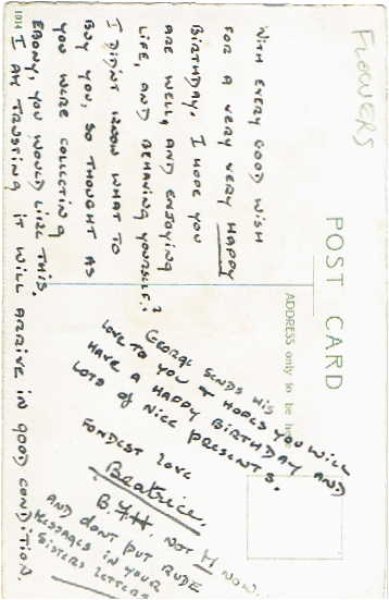 FLOWERS
POST CARD
ADDRESS only to be here
1914
WITH EVERY GOOD WISH
FOR A VERY VERY HAPPY
BIRTHDAY. I HOPE YOU
ARE WELL, AND ENJOYING
LIFE, AND BEHAVING YOURSELF.?
I DIDN'T KNOW WHAT TO
BUY YOU, SO THOUGHT AS
YOU WERE COLLECTING
EBONY, YOU WOULD LIKE THIS.
I AM TRUSTING IT WILL ARRIVE IN GOOD CONDITION.
GEORGE SENDS HIS
LOVE TO YOU & HOPES YOU WILL
HAVE A HAPPY BIRTHDAY AND
LOTS OF NICE PRESENTS.
FONDEST LOVE
Beatrice.
B.Y.H. NOT H NOW.
AND DONT PUT RUDE
MESSAGES IN YOUR
SISTERS LETTERS